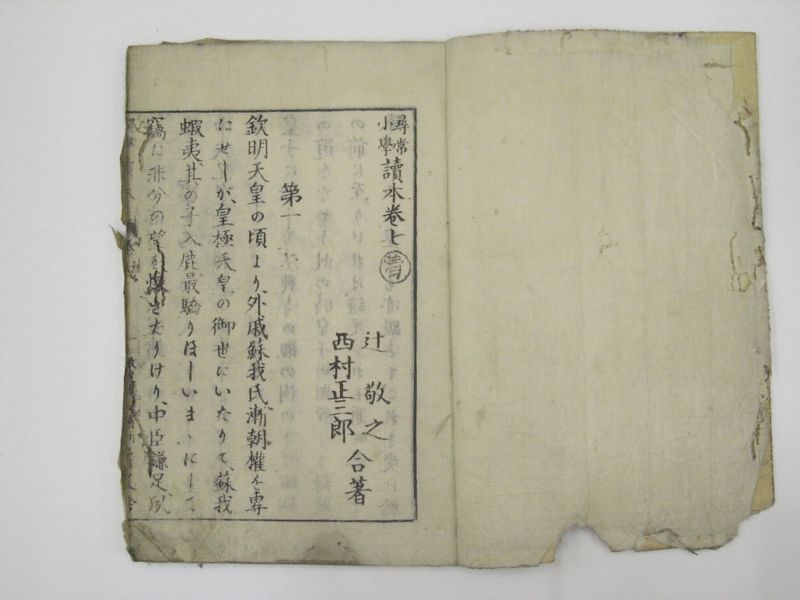 尋常小學讀本卷七
辻敬之
西村正三郎
合著
第一
欽明天皇の頃より、外戚蘇我氏漸朝權を專
にせしが、皇極天皇の御世にいたりて、蘇我
蝦夷、其の子入鹿最驕りほしいまゝにして
竊に非分の望を懷き大りけり、中臣鎌足